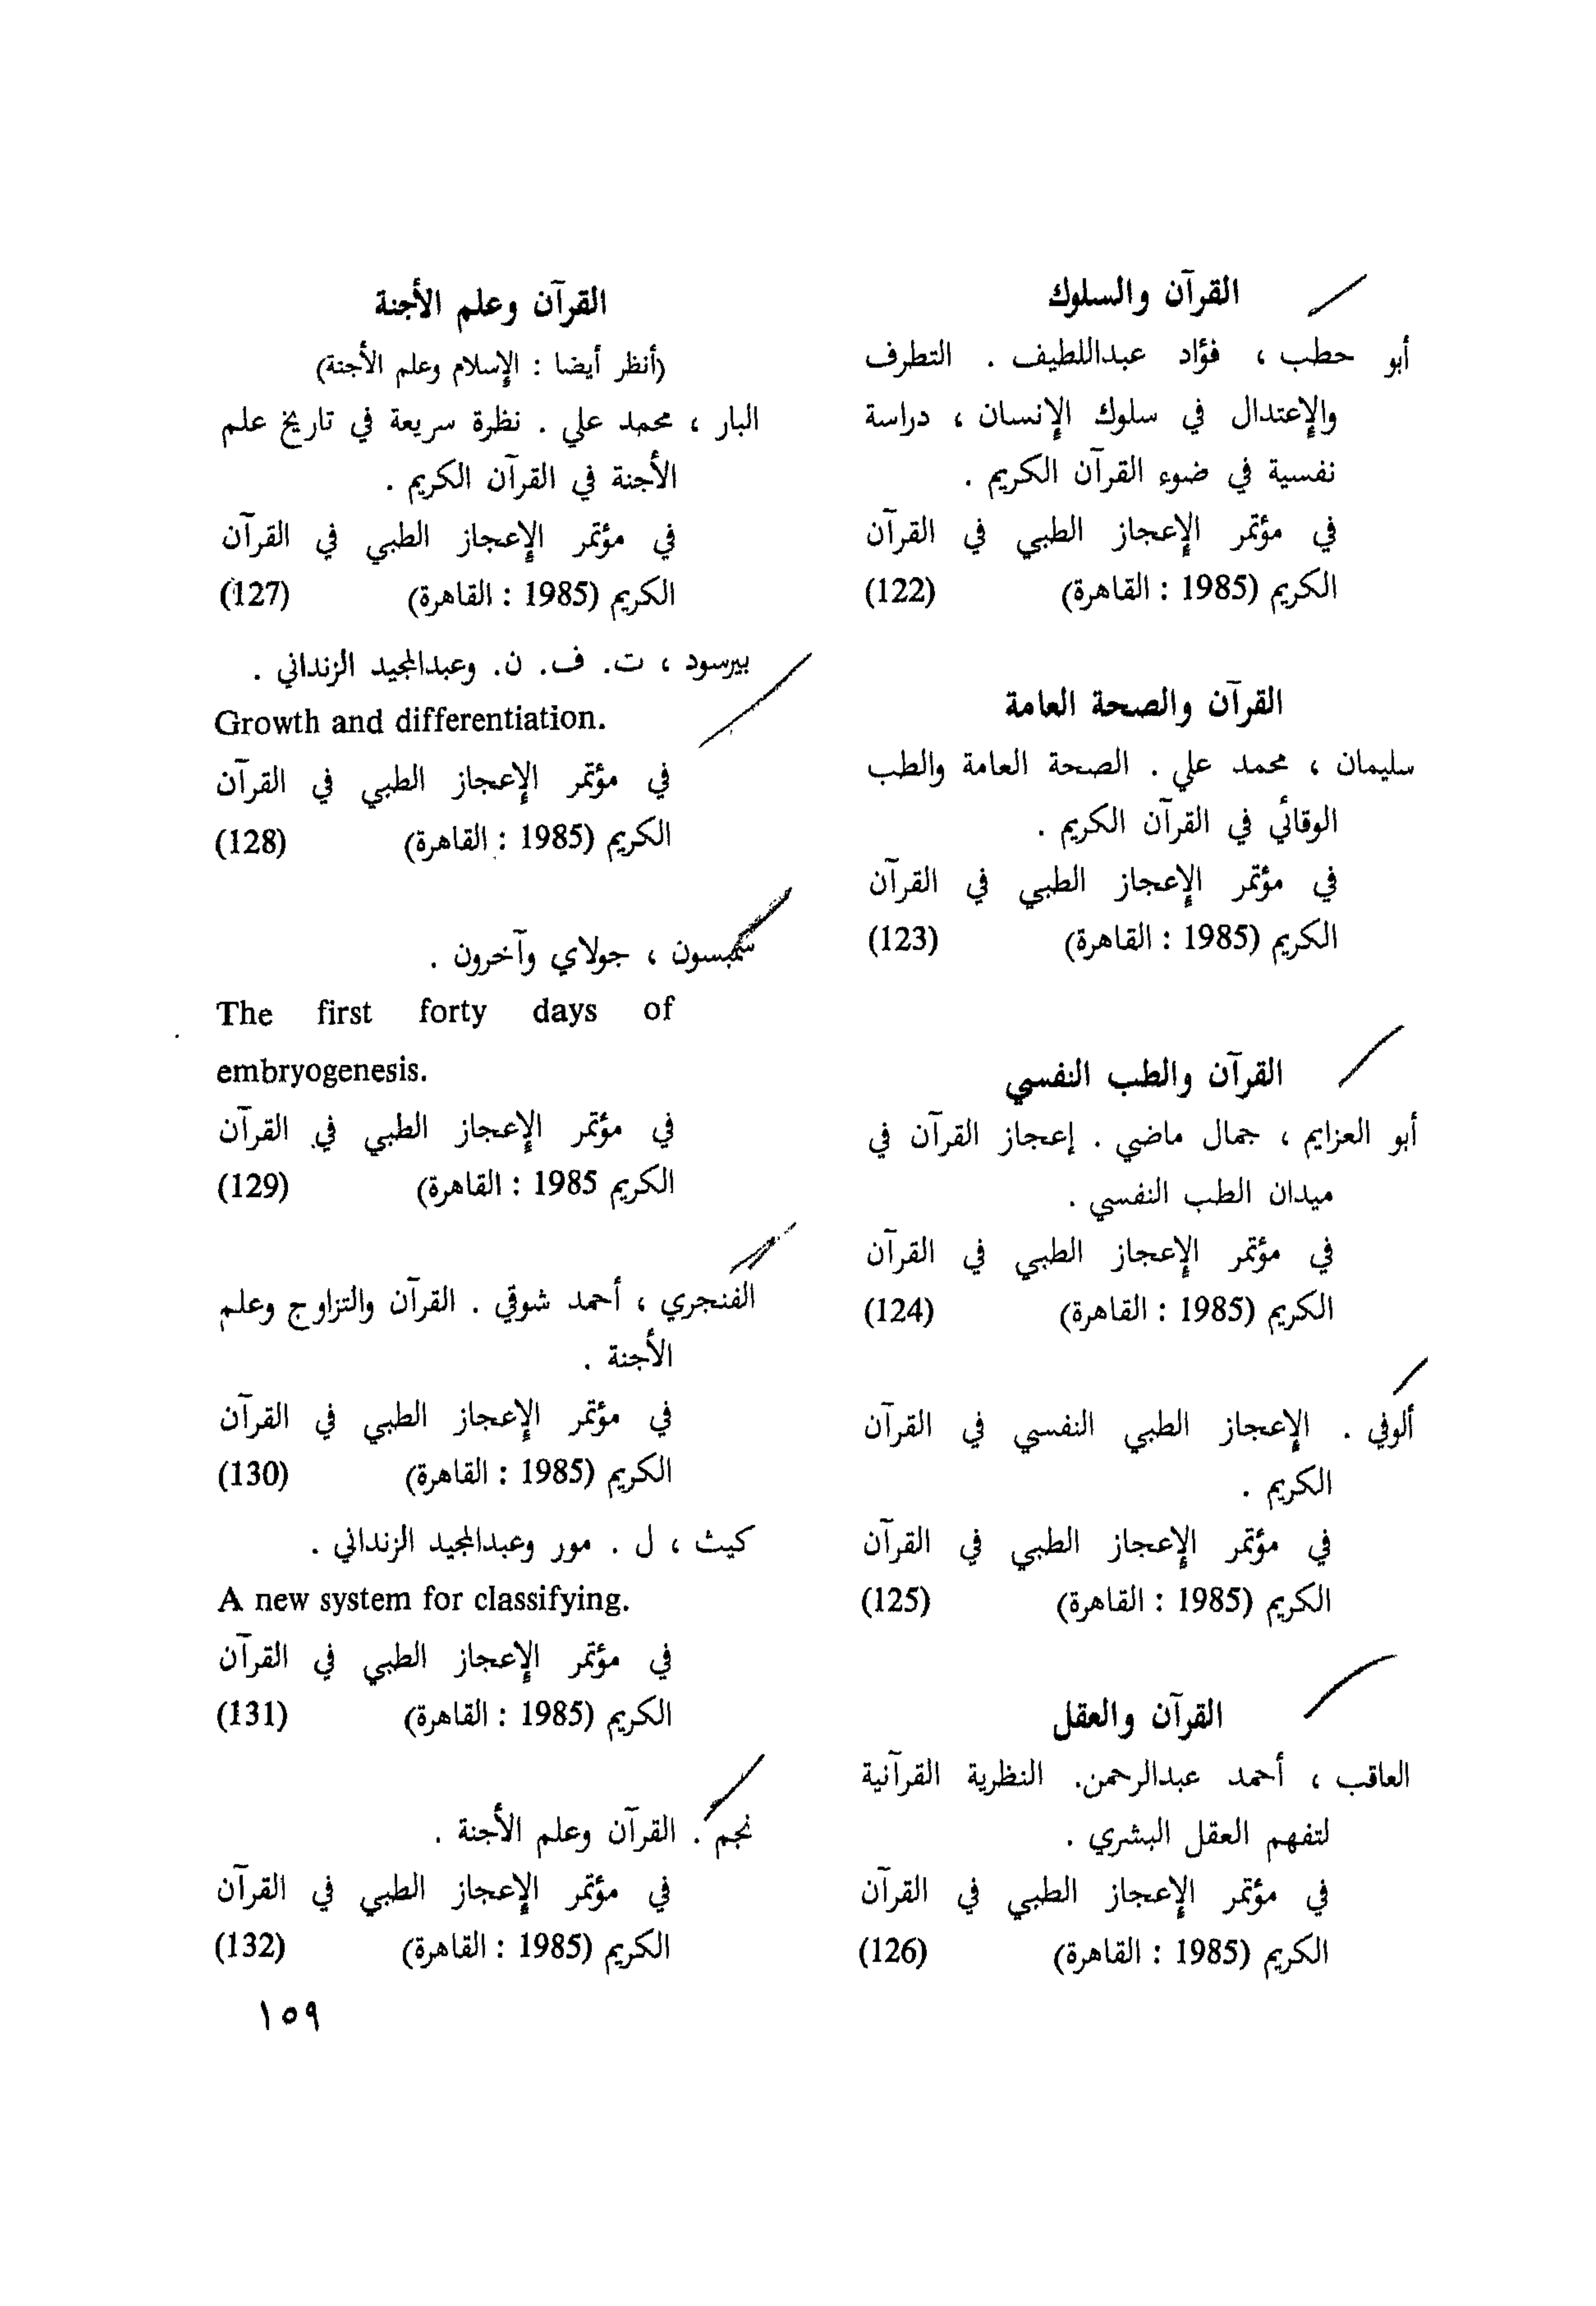 القرآن والسلوك
أبو حطب ، فؤاد عبداللطيف . التطرف
والإعتدال في سلوك الإنسان ، دراسة
نفسية في ضوء القرآن الكريم .
في مؤتمر الإعجاز الطبي في القرآن
الكريم (1985 : القاهرة) (122)
القرآن والصحة العامة
سليمان ، محمد علي . الصحة العامة والطب
الوقائي في القرآن الكريم .
في مؤتمر الإعجاز الطبي في القرآن
الكريم (1985 : القاهرة) (123)
القرآن والطب النفسي
أبو العزايم ، جمال ماضي . إعجاز القرآن في
ميدان الطب النفسي .
في مؤتمر الإعجاز الطبي في القرآن
الكريم (1985 : القاهرة) (124)
ألوفي . الإعجاز الطبي النفسي في القرآن
الكريم .
في مؤتمر الإعجاز الطبي في القرآن
الكريم (1985 : القاهرة) (125)
القرآن والعقل
العاقب ، أحمد عبدالرحمن. النظرية القرآنية
لتفهم العقل البشري .
في مؤتمر الإعجاز الطبي في القرآن
الكريم (1985 : القاهرة) (126)
القرآن وعلم الأجنة
(أنظر أيضا : الإسلام وعلم الأجنة)
البار ، محمد علي . نظرة سريعة في تاريخ علم
الأجنة في القرآن الكريم .
في مؤتمر الإعجاز الطبي في القرآن
الكريم (1985 : القاهرة) (127)
بيرسود ، ت. ف. ن. وعبدالمجيد الزنداني .
Growth and differentiation.
في مؤتمر الإعجاز الطبي في القرآن
الكريم (1985 : القاهرة) (128)
سمبسون ، جولاي وآخرون .
The first forty days of
embryogenesis.
في مؤتمر الإعجاز الطبي في القرآن
الكريم 1985 : القاهرة) (129)
الفنجري ، أحمد شوقي . القرآن والتزاوج وعلم
الأجنة .
في مؤتمر الإعجاز الطبي في القرآن
الكريم (1985 : القاهرة) (130)
كيث ، ل . مور وعبدالمجيد الزنداني .
A new system for classifying.
في مؤتمر الإعجاز الطبي في القرآن
الكريم (1985 : القاهرة) (131)
نجم . القرآن وعلم الأجنة .
في مؤتمر الإعجاز الطبي في القرآن
الكريم (1985 : القاهرة) (132)
١٥٩